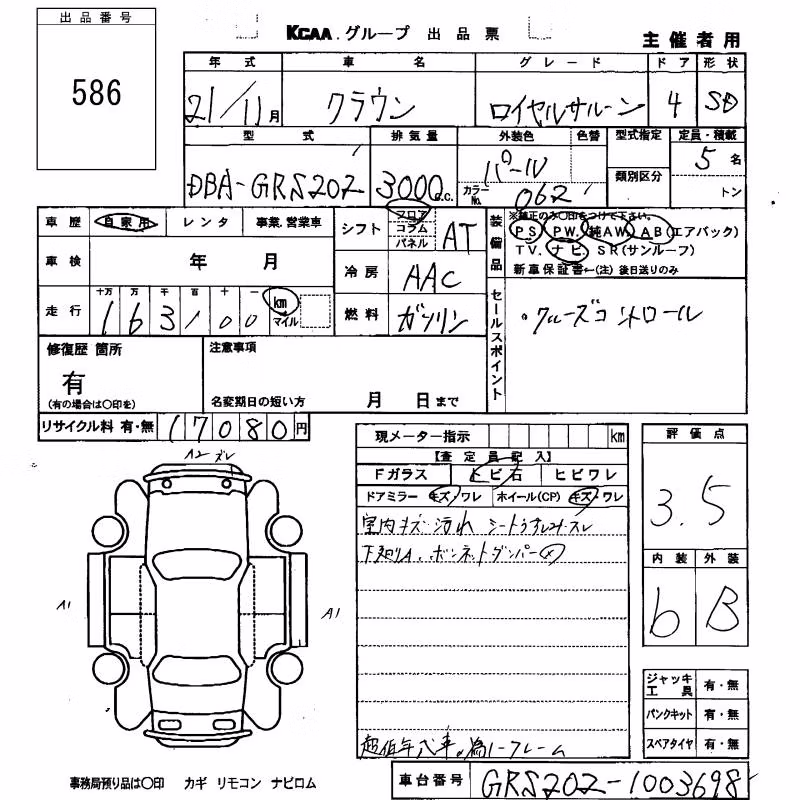 出品番号
586
KCAA.グループ 出品票
主催者用
年式 車名 グレード ドア 形状
21/11月 クラウン ロイヤルサルーン 4 SD
型式 排気量 外装色 色替 型式指定 定員・積載
DBA-GRS202 3000c.c. パール 5名
カラーNo. 062 類別区分 トン
車歴 自家用 レンタ 事業.営業車
シフト フロア コラム パネル AT
装備品 ※純正のみ○印をつけて下さい。
PS PW. 純AW. AB(エアバック)
TV. ナビ. SR(サンルーフ)
新車保証書←(注)後日送りのみ
車検 年 月
冷房 AAC
走行 十万 万 千 百 十 一
163100 km マイル
燃料 ガソリン
セールスポイント
・クルーズコントロール
修復歴 箇所
有
(有の場合は○印を)
注意事項
名変期日の短い方 月 日まで
リサイクル料 有・無 17080円
現メーター指示 km
【査定員記入】
Fガラス ヒビ石 ヒビワレ
ドアミラー キズ・ワレ ホイール(CP) キズ・ワレ
室内キズ汚れ シートうすレ.スレ
下廻りA. ボンネットダンパー✕
評価点
3.5
内装 外装
6 B
A2 ズレ
A1
A1
ジャッキ工具 有・無
パンクキット 有・無
スペアタイヤ 有・無
超低年式車の為ノークレーム
事務局預り品は○印 カギ リモコン ナビロム
車台番号 GRS202-1003698